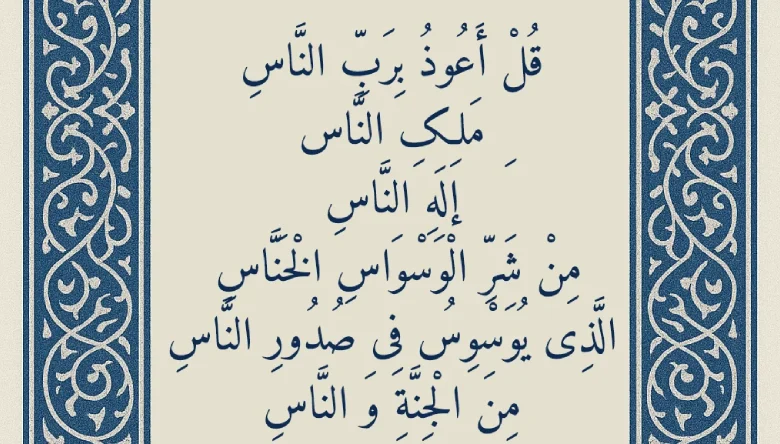 قُلْ أَعُوذُ بِرَبِّ النَّاسِ
مَلِکِ النَّاس
إِلَهِ النَّاسِ
مِنْ شَرِّ الْوَسْوَاسِ الْخَنَّاسِ
الَّذِی یُوَسْوِسُ فِی صُدُورِ النَّاسِ
مِنَ الْجِنَّةِ وَ النَّاسِ